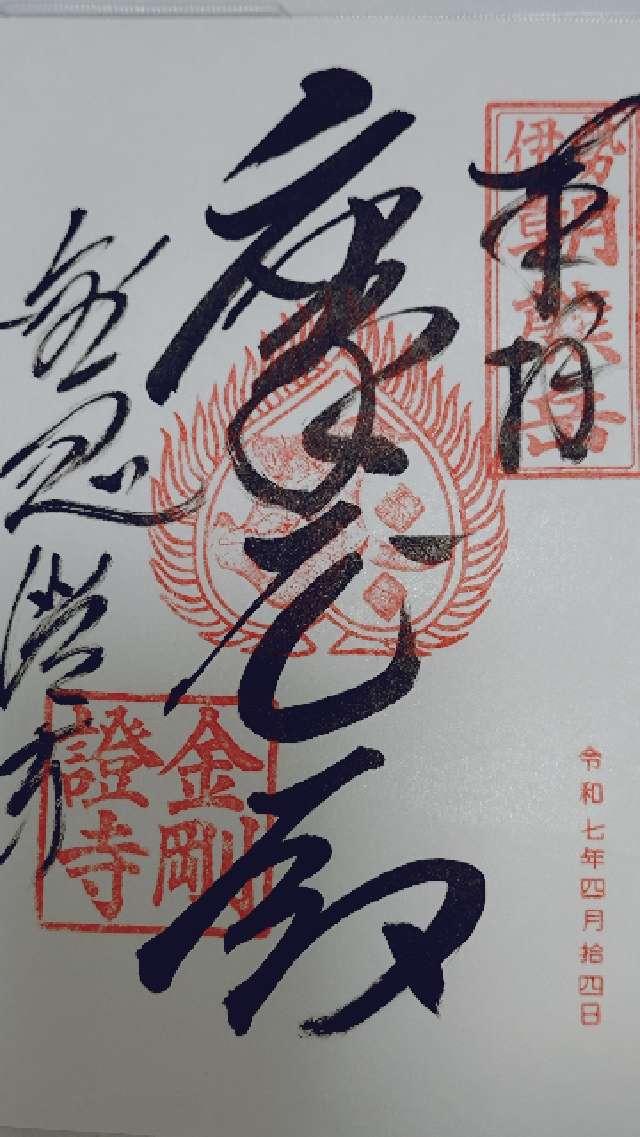 伊勢
朝熊岳
奉拝
令和七年四月拾四日
金剛證寺
金剛證寺